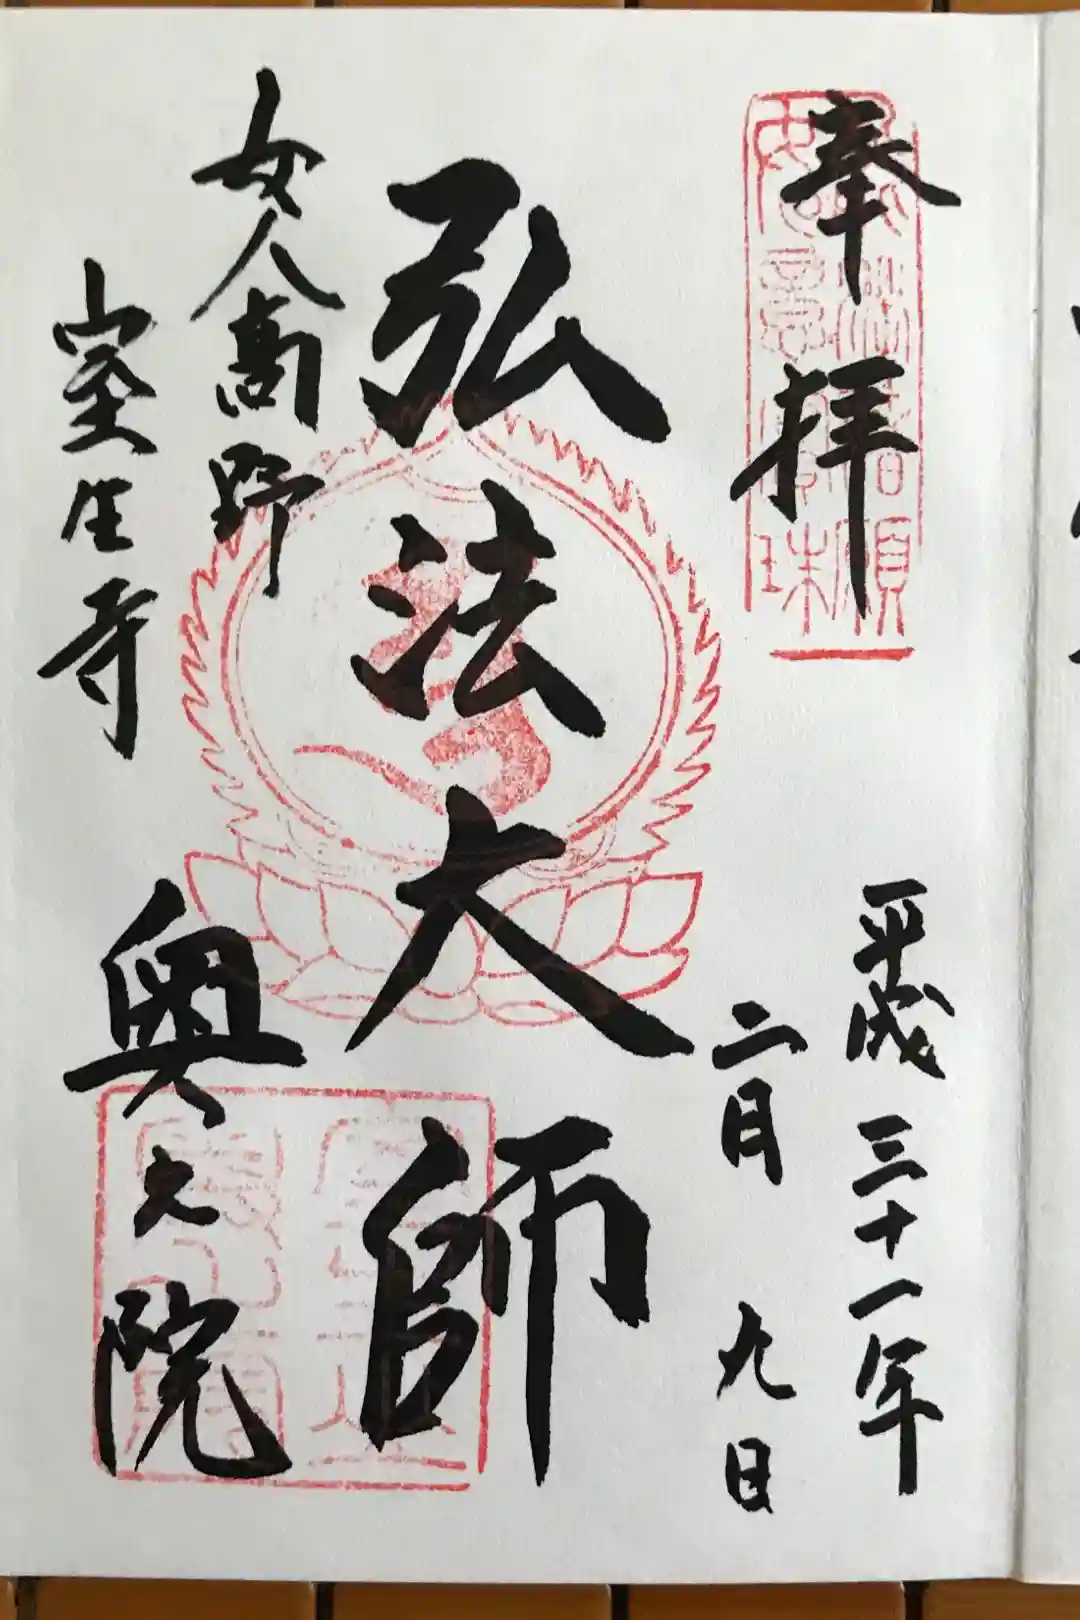 奉拝
平成三十一年
二月九日
弘法大師
女人高野
室生寺
奥之院